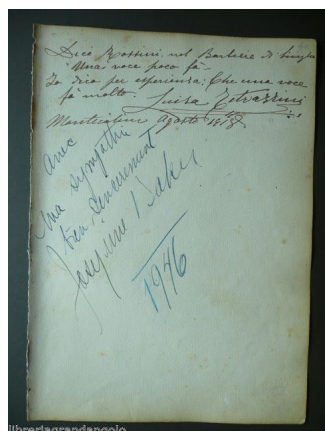 Dice Rossini, nel Barbiere di Siviglia
Una voce poco fà
Io dico per esperienza: Che una voce
fà molto. Luisa Tetrazzini
Montecatini Agosto 1918
avec
ma sympathie
bien sincerement
Josephine Baker
1946
libreriagrandangolo